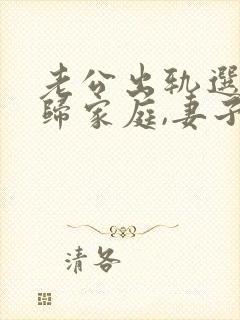 老公出轨選
歸家庭,妻子
清各